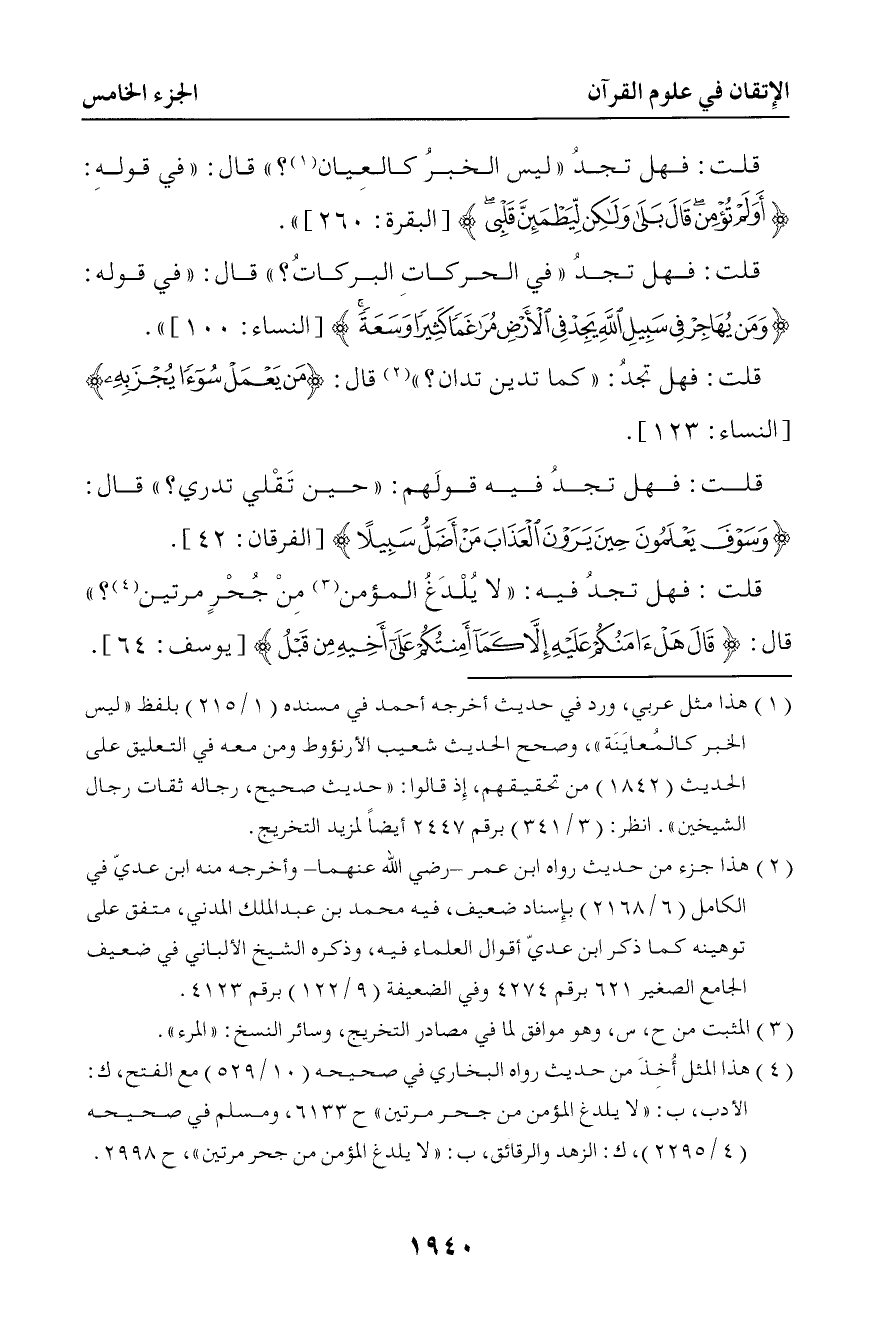 الإتقان في علوم القرآن الجزء الخامس
قلت: فهل تجدُ «ليس الخبرُ كالعيان(١)؟» قال: «في قوله:
﴿أَوَلَمْ تُؤْمِن ۖ قَالَ بَلَىٰ وَلَٰكِن لِّيَطْمَئِنَّ قَلْبِي ۖ﴾ [البقرة: ٢٦٠]».
قلت: فهل تجدُ «في الحركات البركاتُ؟» قال: «في قوله:
﴿وَمَن يُهَاجِرْ فِي سَبِيلِ ٱللَّهِ يَجِدْ فِي ٱلْأَرْضِ مُرَاغَمًا كَثِيرًا وَسَعَةً ۚ﴾ [النساء: ١٠٠]».
قلت: فهل تجدُ: «كما تدين تدان؟»(٢) قال: ﴿مَن يَعْمَلْ سُوٓءًا يُجْزَ بِهِۦ﴾
[النساء: ١٢٣].
قلت: فهل تجدُ فيه قولَهم: «حين تَقْلي تدري؟» قال:
﴿وَسَوْفَ يَعْلَمُونَ حِينَ يَرَوْنَ ٱلْعَذَابَ مَنْ أَضَلُّ سَبِيلًا﴾ [الفرقان: ٤٢].
قلت : فهل تجدُ فيه: «لا يُلْدَغُ المؤمن(٣) مِنْ جُحْرٍ مرتين(٤)؟»
قال: ﴿قَالَ هَلْ ءَامَنُكُمْ عَلَيْهِ إِلَّا كَمَآ أَمِنتُكُمْ عَلَىٰٓ أَخِيهِ مِن قَبْلُ﴾ [يوسف: ٦٤].
(١) هذا مثل عربي، ورد في حديث أخرجه أحمد في مسنده (١/ ٢١٥) بلفظ «ليس
الخبر كالمُعايَنَة»، وصحح الحديث شعيب الأرنؤوط ومن معه في التعليق على
الحديث (١٨٤٢) من تحقيقهم، إذ قالوا: «حديث صحيح، رجاله ثقات رجال
الشيخين». انظر: (٣/ ٣٤١) برقم ٢٤٤٧ أيضاً لمزيد التخريج.
(٢) هذا جزء من حديث رواه ابن عمر -رضي الله عنهما- وأخرجه منه ابن عديّ في
الكامل (٦/ ٢١٦٨) بإسناد ضعيف، فيه محمد بن عبدالملك المدني، متفق على
توهينه كما ذكر ابن عديّ أقوال العلماء فيه، وذكره الشيخ الألباني في ضعيف
الجامع الصغير ٦٢١ برقم ٤٢٧٤ وفي الضعيفة (٩/ ١٢٢) برقم ٤١٢٣.
(٣) المثبت من ح، س، وهو موافق لما في مصادر التخريج، وسائر النسخ: «المرء».
(٤) هذا المثل أُخِذَ من حديث رواه البخاري في صحيحه (١٠/ ٥٢٩) مع الفتح، ك:
الأدب، ب: «لا يلدغ المؤمن من جحر مرتين» ح ٦١٣٣، ومسلم في صحيحه
(٤/ ٢٢٩٥)، ك: الزهد والرقائق، ب: «لا يلدغ المؤمن من جحر مرتين»، ح ٢٩٩٨.
١٩٤٠